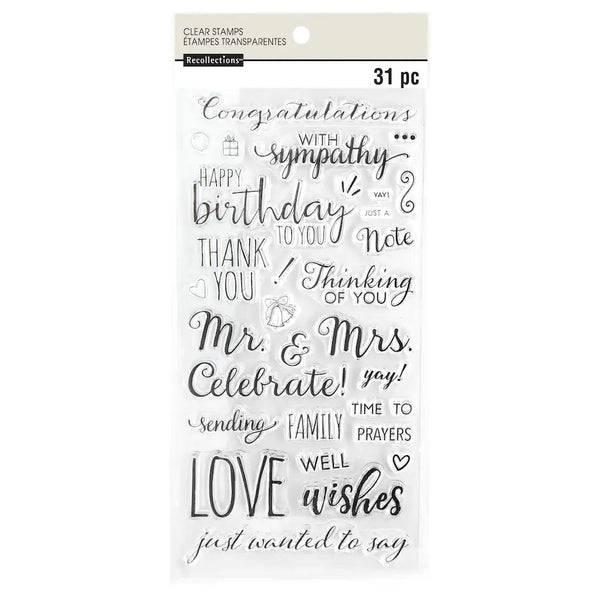 CLEAR STAMPS
ÉTAMPES TRANSPARENTES
Recollections™
31 pc
Congratulations
WITH
sympathy
HAPPY
birthday
TO YOU
YAY!
JUST A
Note
THANK
YOU
!
Thinking
OF YOU
Mr. & Mrs.
Celebrate!
yay!
sending
FAMILY
TIME TO
PRAYERS
LOVE
WELL
wishes
just wanted to say